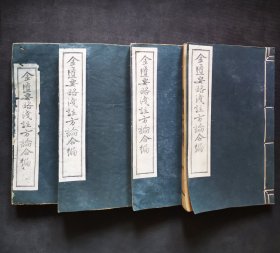 金匱要略浅註方論合编
金匱要略浅註方論合编
金匱要略浅註方論合编
金匱要略浅註方論合编